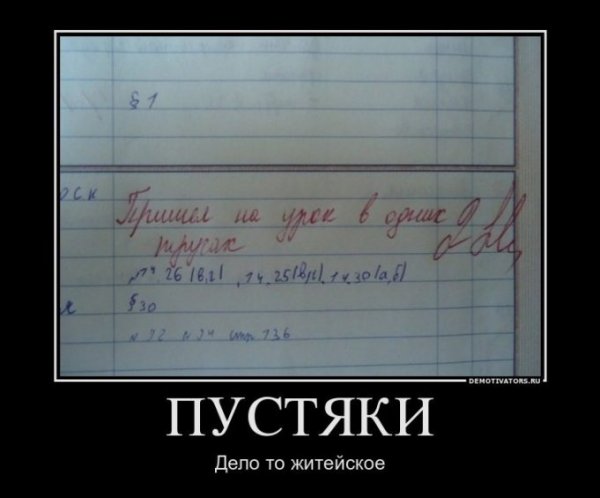 § 1
оск
Пришел на урок в одних
трусах
№14.26(в,г), 14.25(в,г), 14.30(а,б)
я §30
№32 №34 стр 136
DEMOTIVATORS.RU
ПУСТЯКИ
Дело то житейское